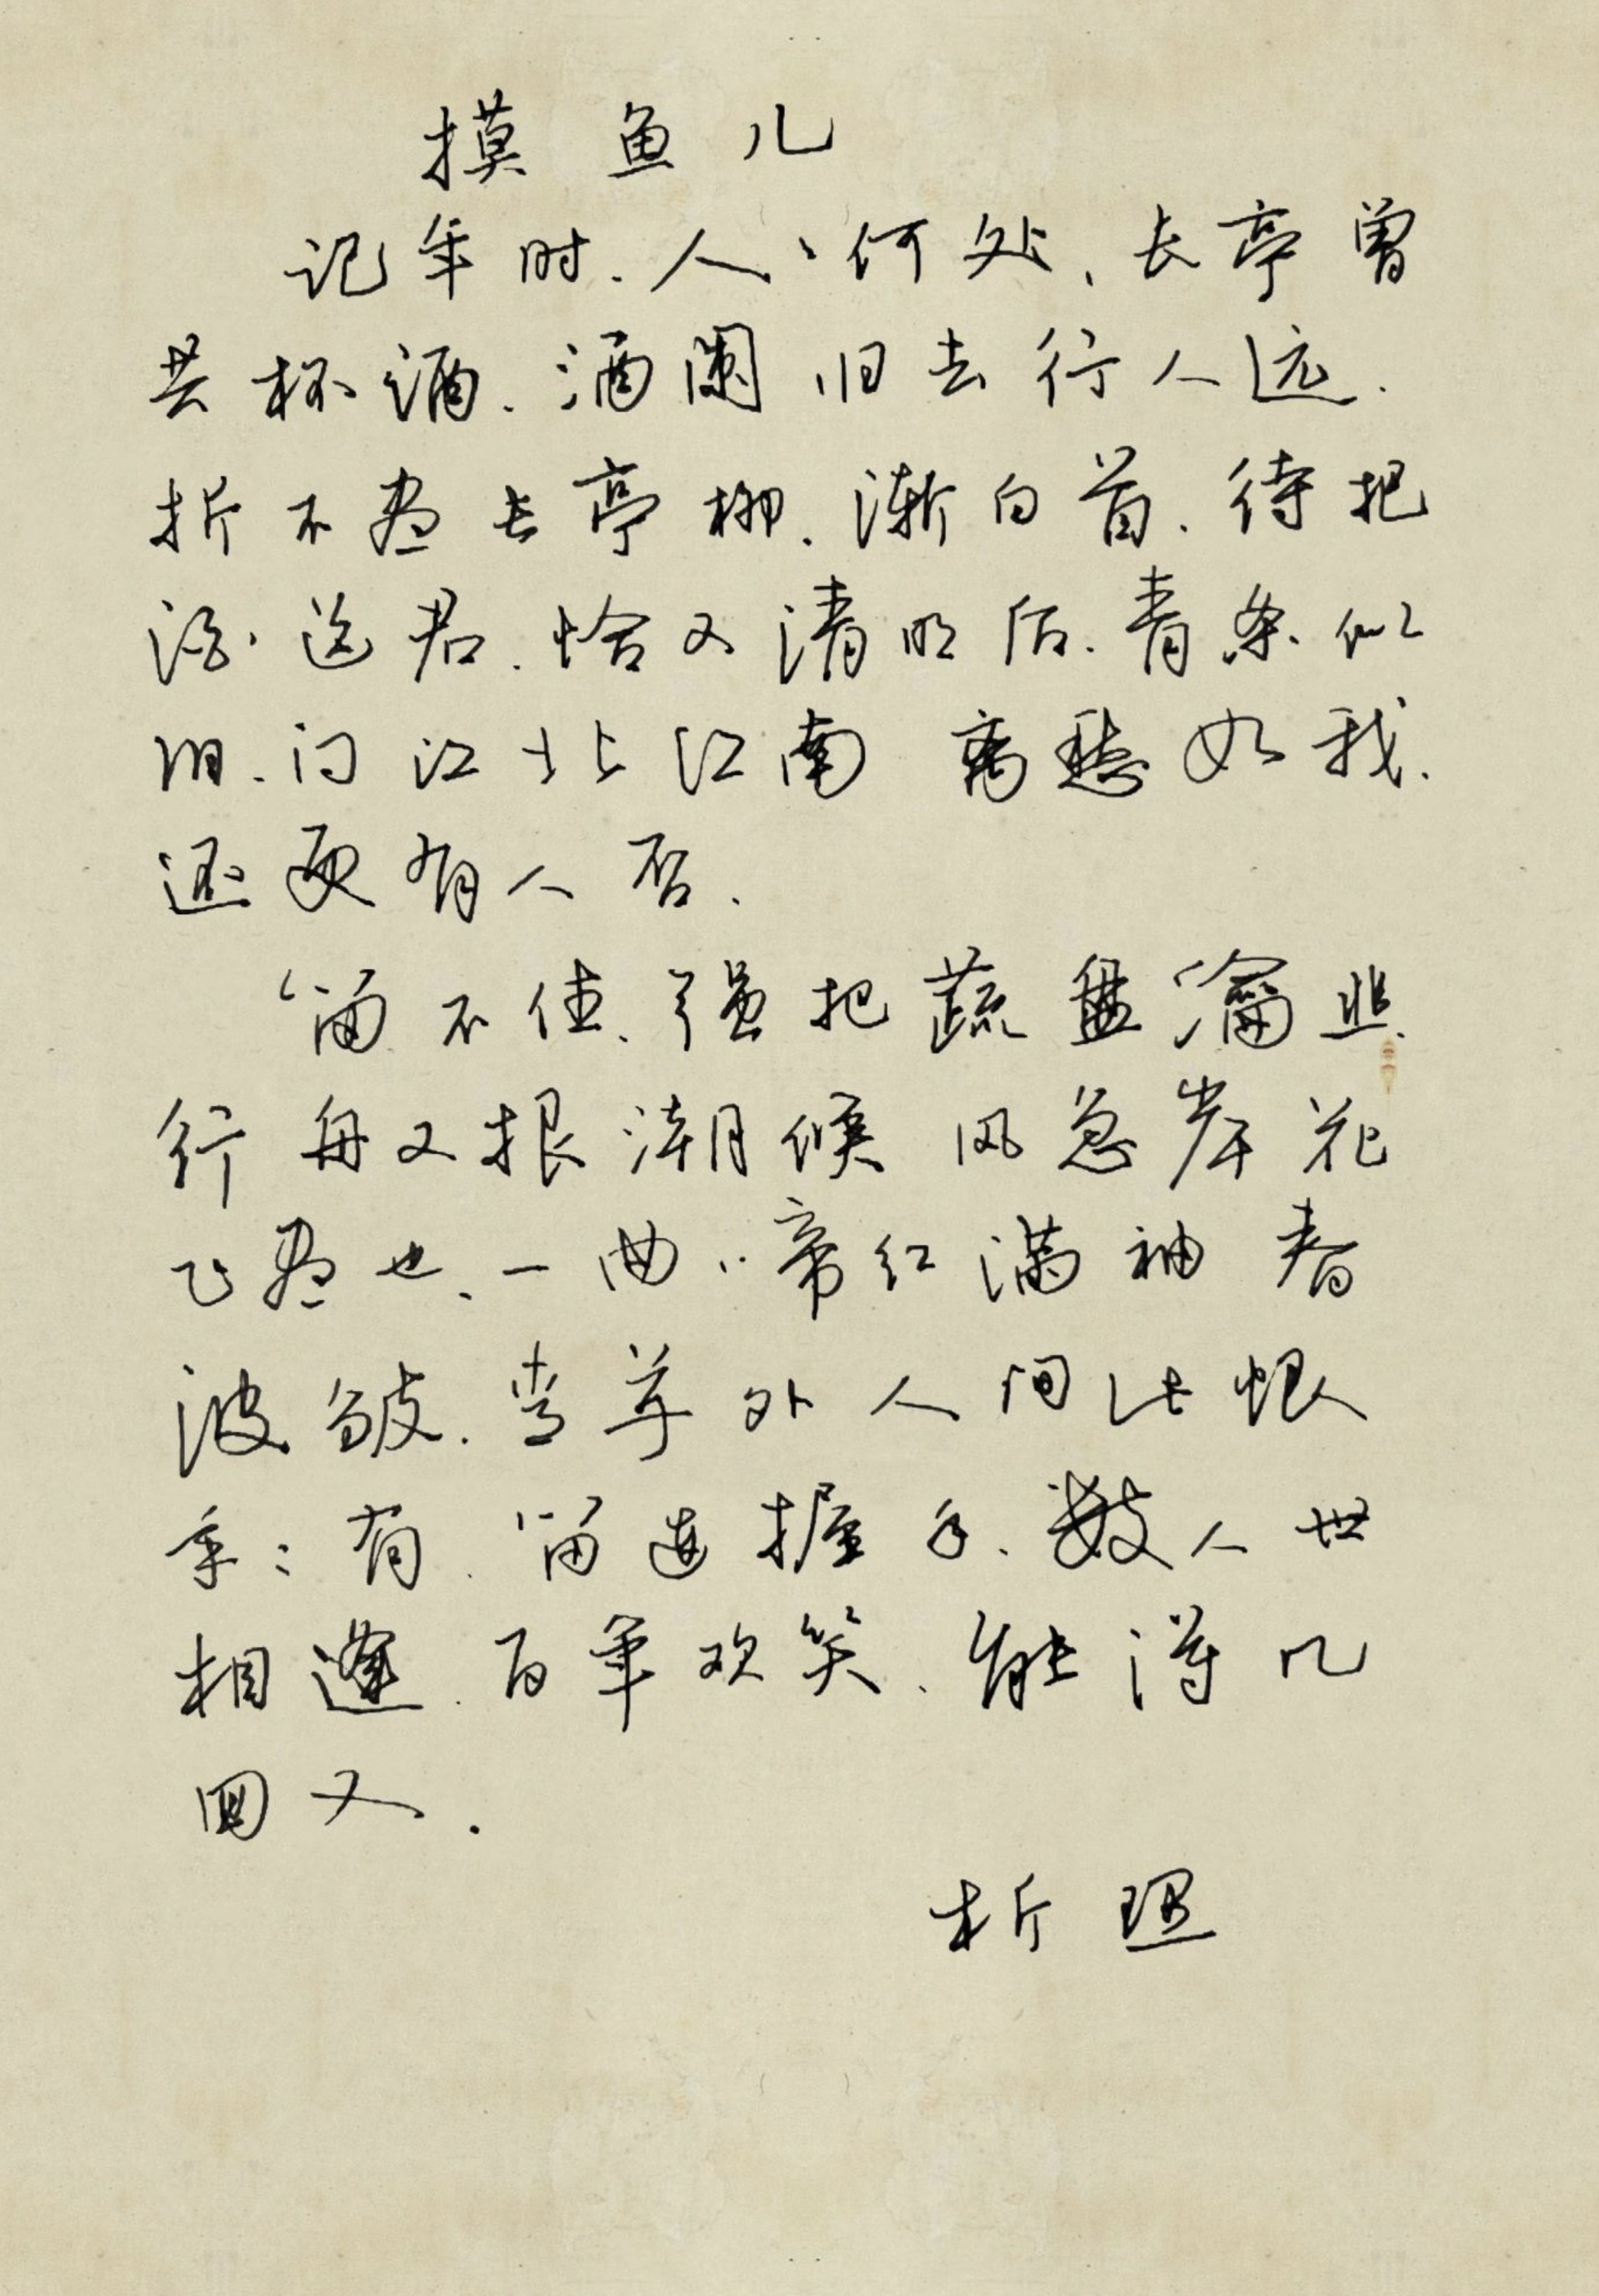 摸鱼儿
记年时、人人何处、长亭曾
共杯酒、酒阑归去行人远、
折不尽长亭柳、渐白首、待把
酒送君、恰又清明后、青条似
旧、问江北江南 离愁如我、
还更有人否、
留不住、强把蔬盘瀹韭、
行舟又报潮候 风急岸花
飞尽也、一曲啼红满袖 春
波皱、青草外人间此恨
年:有、留连握手、数人世
相逢、百年欢笑、能得几
回又.
析